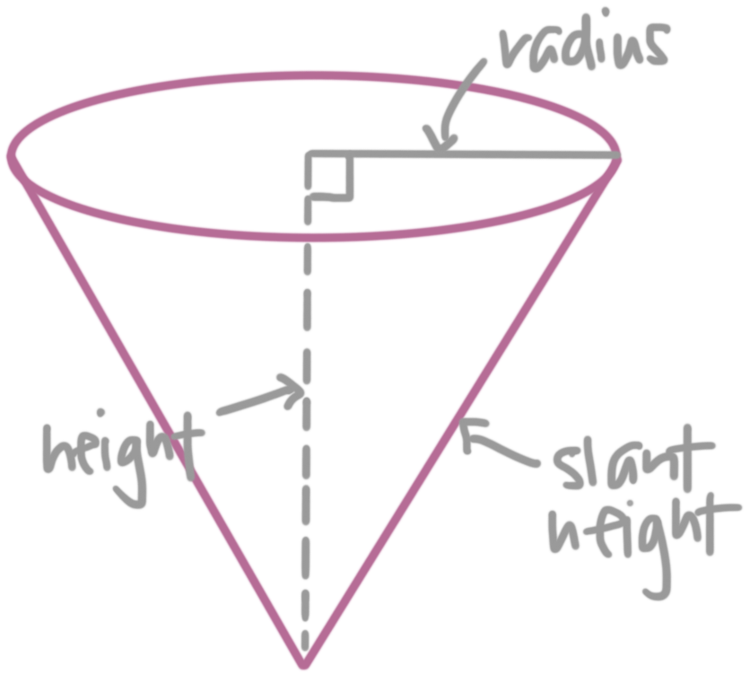 radius
height
slant
height